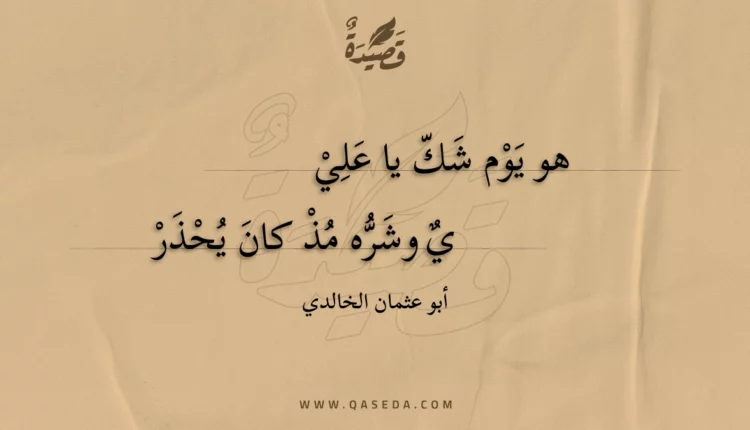 قَصِيدَةٌ
هو يَوْم شَكّ يا عَلِيْ
يٌ وشَرُّه مُذْ كانَ يُحْذَرْ
أبو عثمان الخالدي
WWW.QASEDA.COM